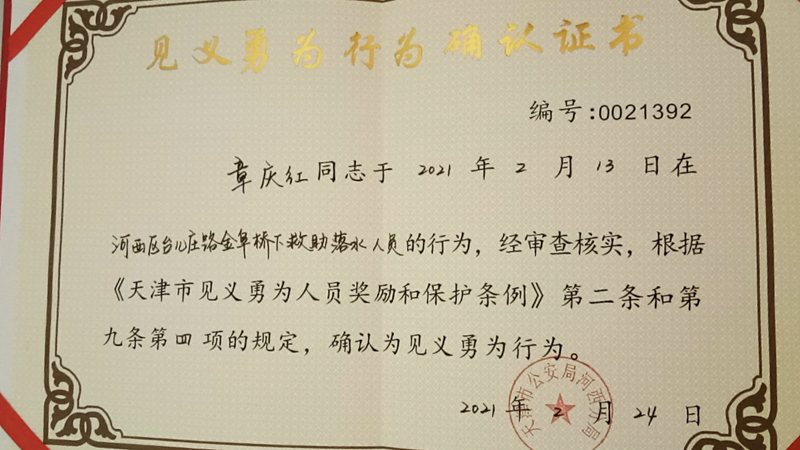 见义勇为行为确认证书
编号:0021392
章庆红同志于 2021 年 2 月 13 日在
河西区台儿庄路金阜桥下救助落水人员的行为，经审查核实，根据
《天津市见义勇为人员奖励和保护条例》第二条和第
九条第四 项的规定，确认为见义勇为行为。
天津市公安局河西分局
2021 年 2 月 24 日